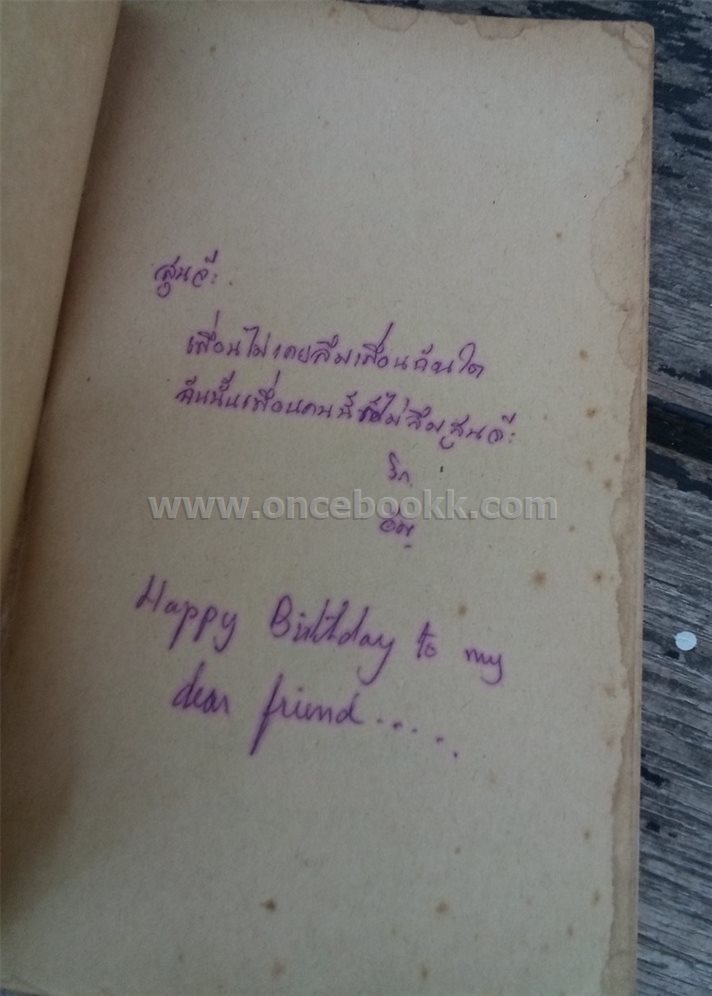 สูนจ๊ะ
เพื่อนไม่เคยลืมเพื่อนฉันใด
ฉันนั้นเพื่อนคนนี้ก็ไม่ลืมสูนจ๊ะ
รัก
www.oncebookk.com
Happy Birthday to my
dear friend.....